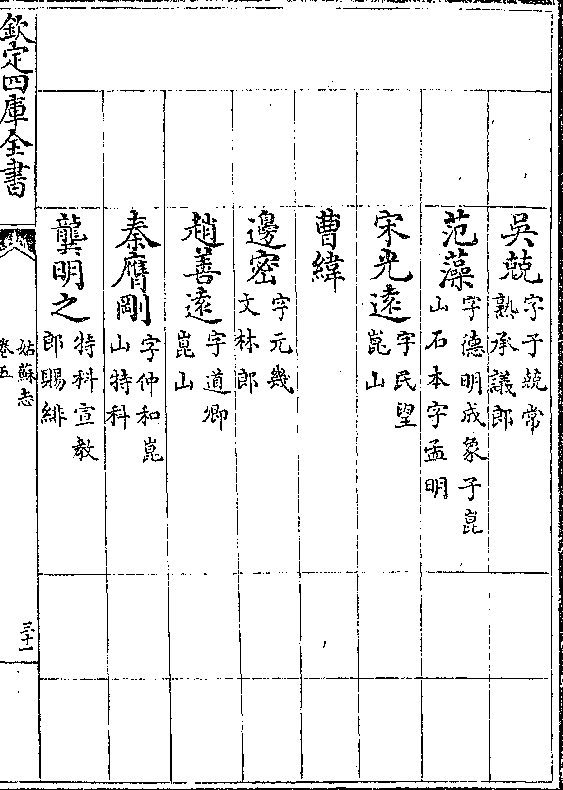 吳兢字子兢常
熟承議郎
范藻字德明成象子崑
山石本字孟明
宋光遠字民望
崑山
曹緯
邊密字元幾
文林郎
趙善遠字道卿
崑山
秦膺剛字仲和崑
山特科
龔明之特科宣教
郎賜緋
欽定四庫全書
姑蘇志
卷五
三十一